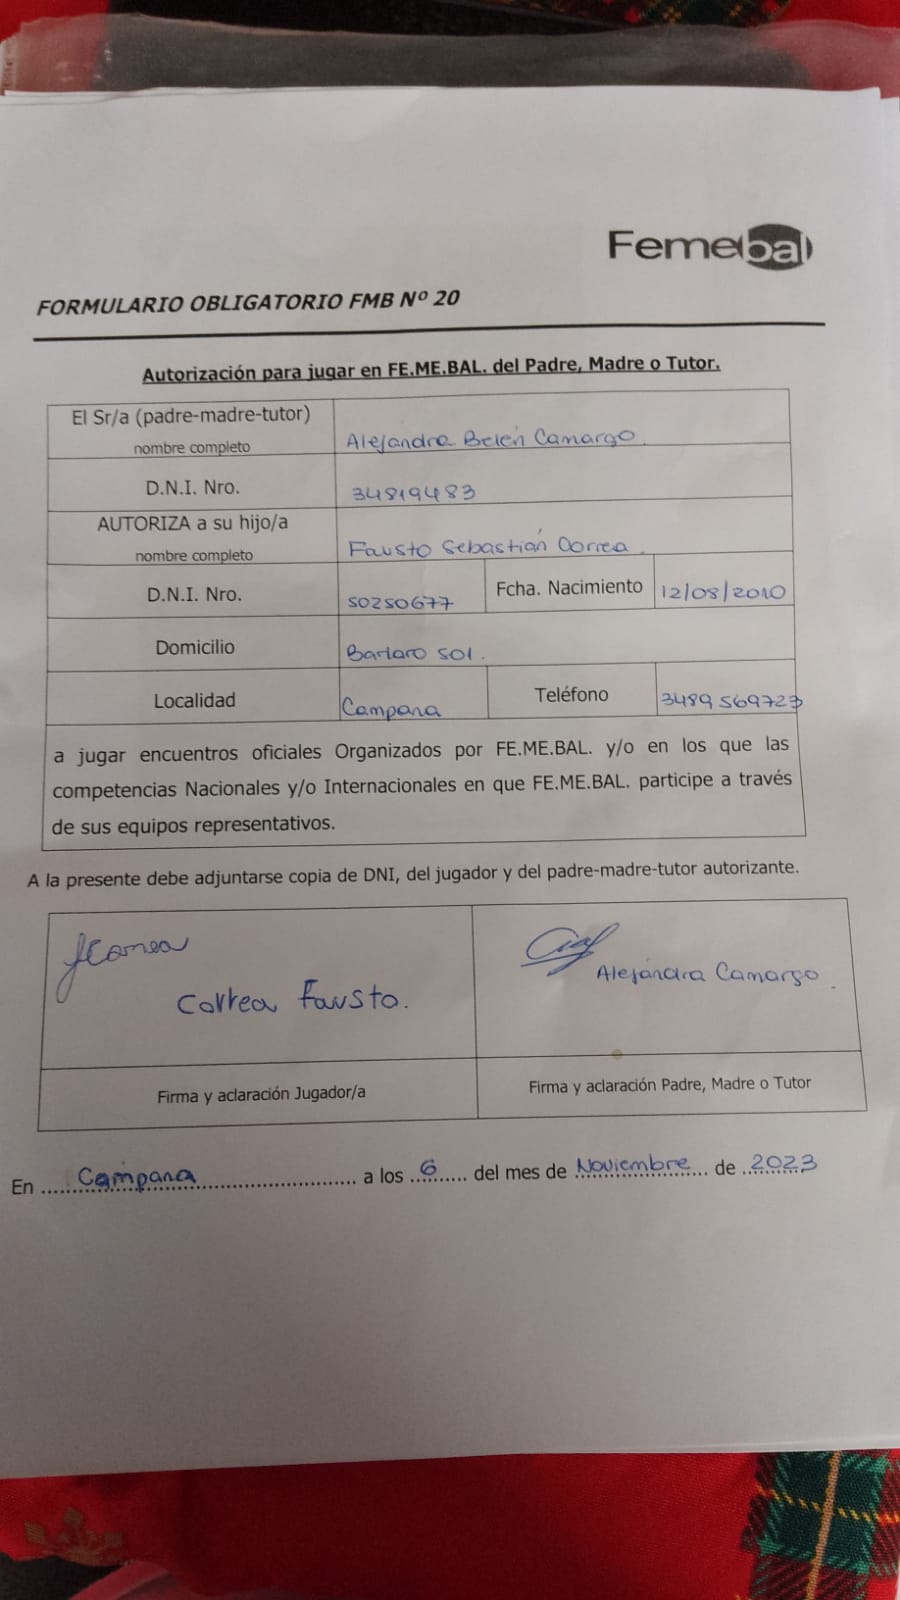 Femebal
FORMULARIO OBLIGATORIO FMB Nº 20
Autorización para jugar en FE.ME.BAL. del Padre, Madre o Tutor.
El Sr/a (padre-madre-tutor)
nombre completo
Alejandra Belén Camargo.
D.N.I. Nro.
34819483
AUTORIZA a su hijo/a
nombre completo
Fausto Sebastián Correa.
D.N.I. Nro.
50250677
Fcha. Nacimiento
12/08/2010
Domicilio
Bartaro 501.
Localidad
Campana
Teléfono
3489 569723
a jugar encuentros oficiales Organizados por FE.ME.BAL. y/o en los que las
competencias Nacionales y/o Internacionales en que FE.ME.BAL. participe a través
de sus equipos representativos.
A la presente debe adjuntarse copia de DNI, del jugador y del padre-madre-tutor autorizante.
fCorrea
Correa Fausto.
Alejandra Camargo.
Firma y aclaración Jugador/a
Firma y aclaración Padre, Madre o Tutor
En Campana a los 6 del mes de Noviembre de 2023